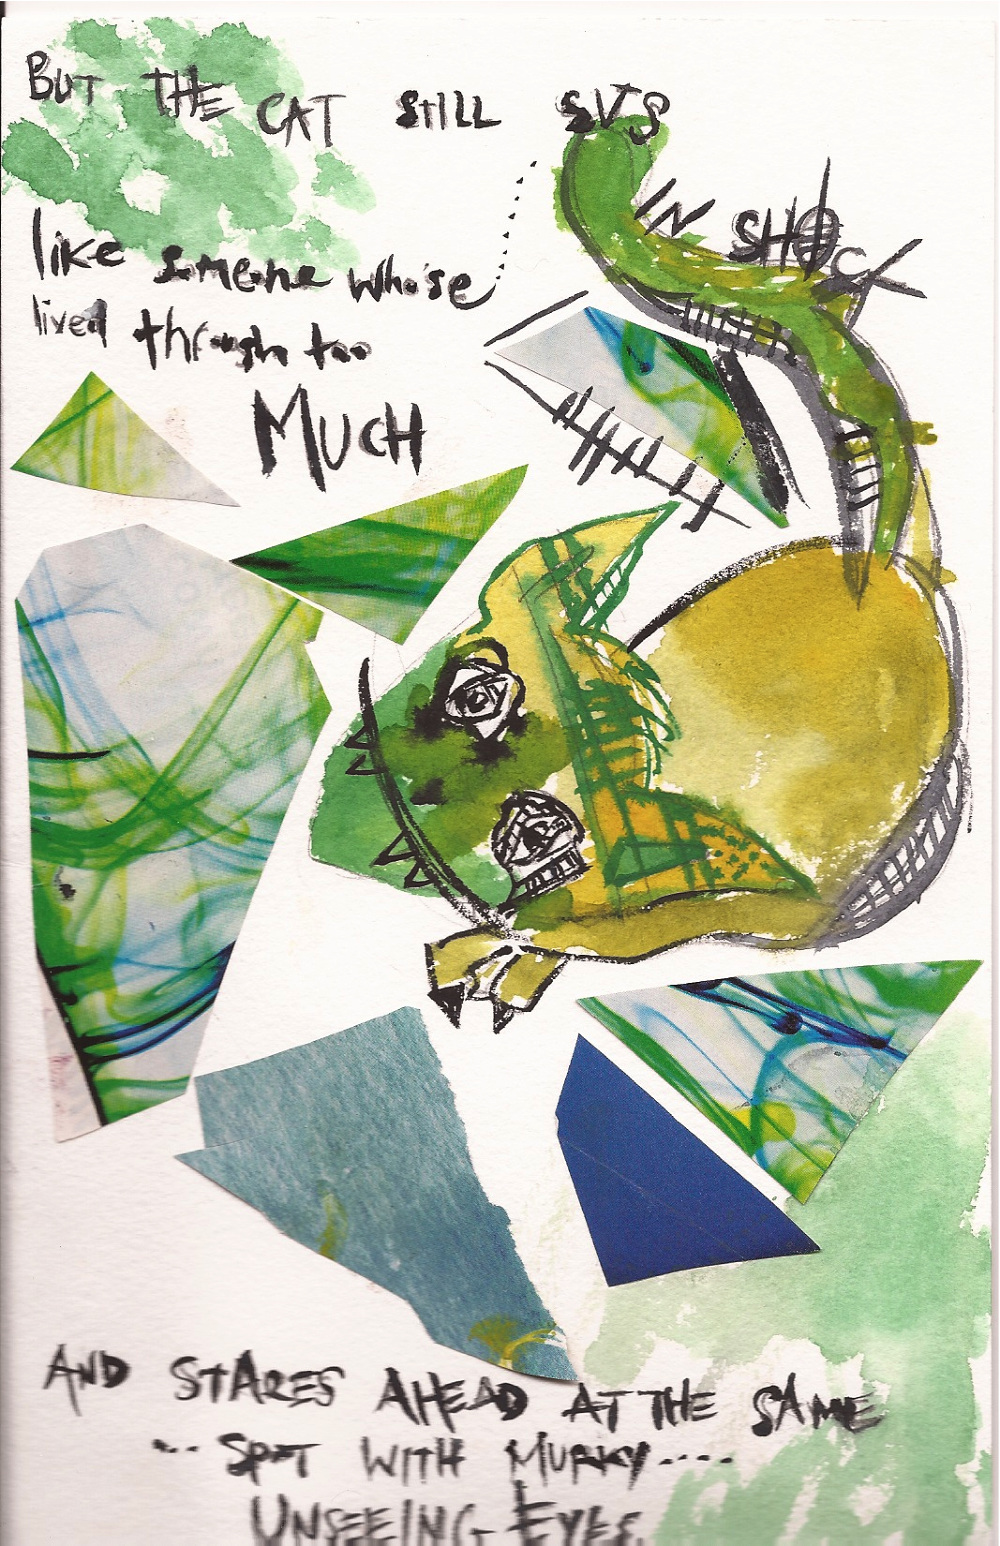 BUT THE CAT STILL SITS
IN SHOCK
like someone who's
lived through too
MUCH
AND STARES AHEAD AT THE SAME
... SPOT WITH MURKY....
UNSEEING EYES